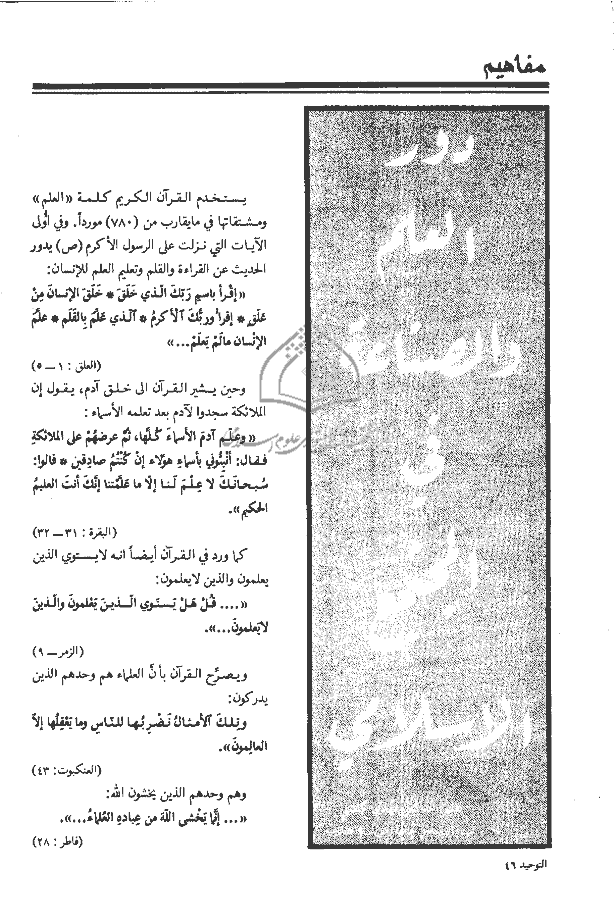 مفاهيم
دور
العلم
والصناعة
في
المجتمع
الاسلامي
يستخدم القرآن الكريم كلمة «العلم»
ومشتقاتها في مايقارب من (٧٨٠) مورداً. وفي أولى
الآيات التي نزلت على الرسول الأكرم (ص) يدور
الحديث عن القراءة والقلم وتعليم العلم للإنسان:
«إقرأ باسم رَبّكَ الّذي خَلَقَ * خَلَقَ الإنسانَ مِنْ
عَلَقٍ * إقرأ وربُّكَ الْأكرمُ * الّذي عَلَّمَ بِالقَلَمِ * علَّمَ
الإنْسان مالَمْ يَعلَمْ...»
(العلق : ١ــ٥)
وحين يشير القرآن الى خلق آدم، يقول إن
الملائكة سجدوا لآدم بعد تعلمه الأسماء :
«وعلّم آدمَ الأسماءَ كُلَّها، ثُمَّ عرضهُمْ على الملائكةِ
فقال: أنْبِئُوني بأسماءِ هؤلاء إنْ كُنْتُمْ صادِقين * قالوا:
سُبحانَكَ لا عِلْمَ لَنا إلّا ما عَلَّمْتَنا إنَّكَ أنتَ العليمُ
الحكيم».
(البقرة : ٣١ــ٣٢)
كما ورد في القرآن أيضاً انه لايستوي الذين
يعلمون والذين لايعلمون:
«.... قُلْ هَلْ يَسْتَوي الَّذينَ يَعْلمونَ والَّذينَ
لايَعلمونَ...».
(الزمرــ٩)
ويصرّح القرآن بأنَّ العلماء هم وحدهم الذين
يدركون:
«وتِلكَ الأمثالُ نَضْرِبُها للنّاسِ وما يَعْقِلُها إلاّ
العالِمونَ».
(العنكبوت: ٤٣)
وهم وحدهم الذين يخشون الله:
«... إنّما يَخْشى اللهَ مِن عِبادِهِ العُلماءُ...».
(فاطر : ٢٨)
التوحيد ٤٦